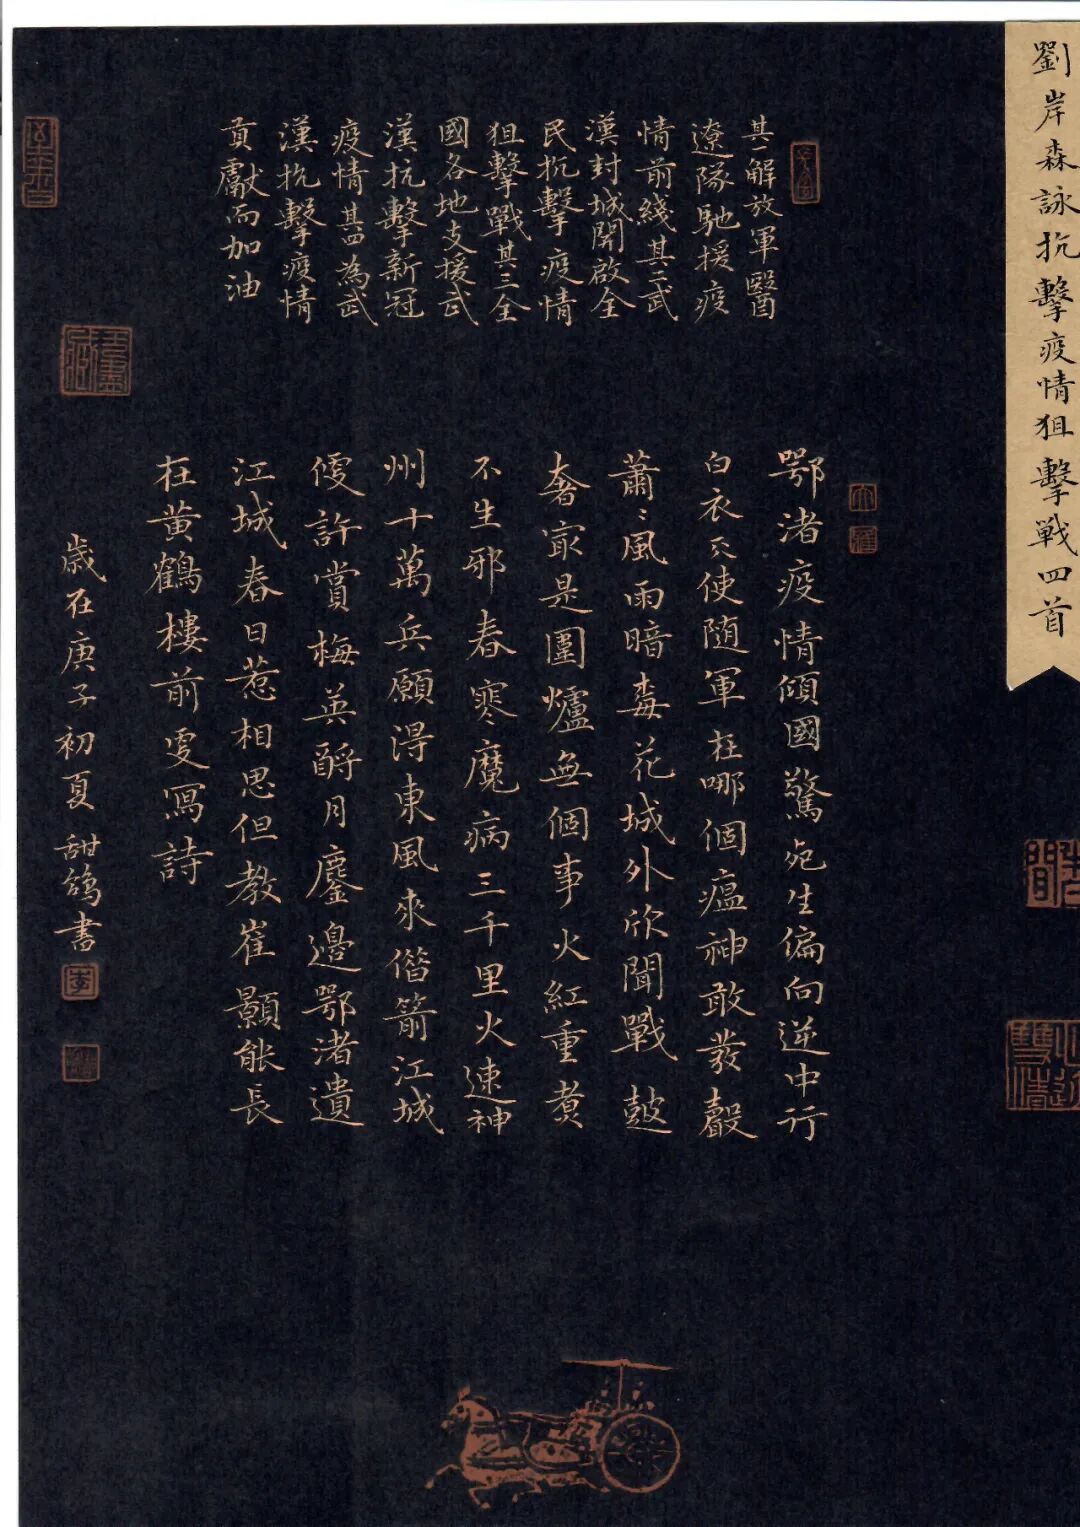 劉岸森詠抗擊疫情狙擊戦四首
其一解放軍醫
遼隊馳援疫
情前綫其二武
漢封城開啟全
民抗擊疫情
狙擊戰其三全
國各地支援武
漢抗擊新冠
疫情其四為武
漢抗擊疫情
貢獻而加油
鄂渚疫情傾國驚死生偏向逆中行
白衣天使随軍在哪個瘟神敢發聲
蕭〻風雨暗毒花城外欣聞戰鼓
奢冣是圍爐無個事火紅重煑
不生邪春寒魔病三千里火速神
州十萬兵願得東風來偕箭江城
優許賞梅英酹月鏖邊鄂渚遺
江城春日惹相思但教崔顥能長
在黄鶴樓前更寫詩
歲在庚子初夏甜鴿書